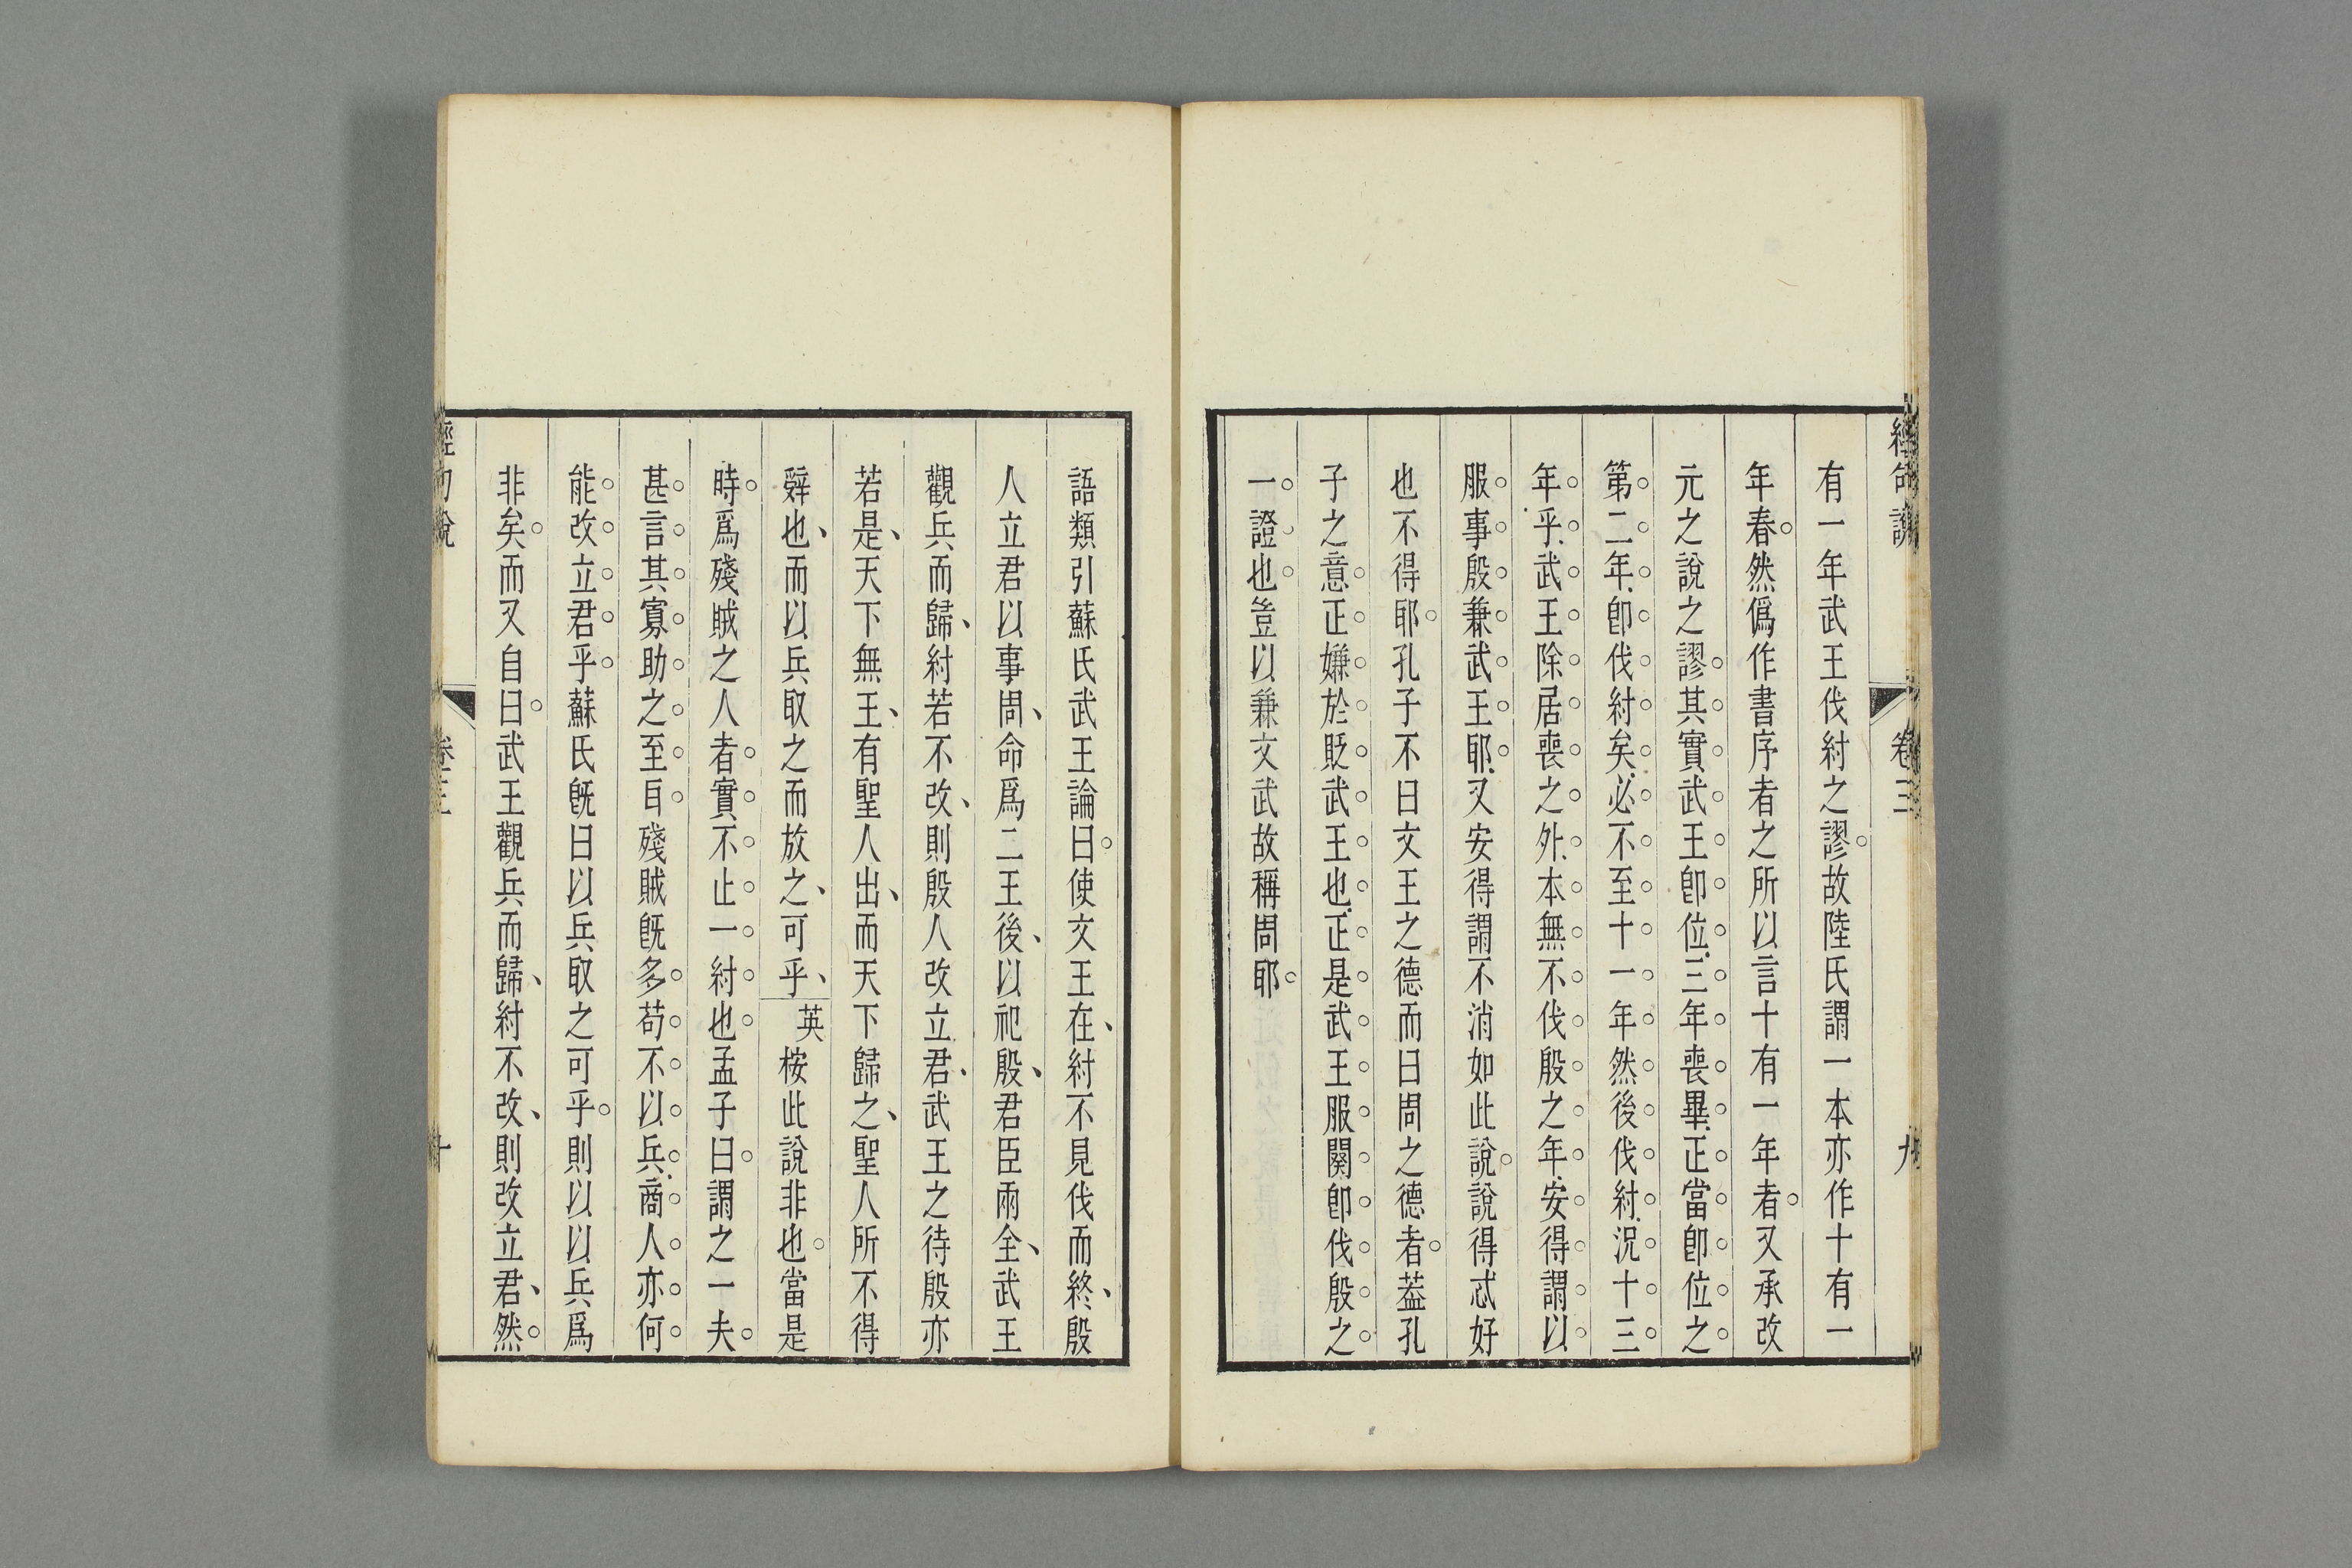 經句說
卷三
九
有一年武王伐紂之謬故陸氏謂一本亦作十有一
年春然僞作書序者之所以言十有一年者又承改
元之說之謬其實武王卽位三年喪畢正當卽位之
第二年卽伐紂矣必不至十一年然後伐紂況十三
年乎武王除居喪之外本無不伐殷之年安得謂以
服事殷兼武王耶又安得謂不消如此說說得忒好
也不得耶孔子不曰文王之德而曰周之德者葢孔
子之意正嫌於貶武王也正是武王服闋卽伐殷之
一證也豈以兼文武故稱周耶
語類引蘇氏武王論曰使文王在紂不見伐而終殷
人立君以事周命爲二王後以祀殷君臣兩全武王
觀兵而歸紂若不改則殷人改立君武王之待殷亦
若是天下無王有聖人出而天下歸之聖人所不得
辤也而以兵取之而放之可乎英桉此說非也當是
時爲殘賊之人者實不止一紂也孟子曰謂之一夫
甚言其寡助之至㠯殘賊旣多苟不以兵商人亦何
能改立君乎蘇氏旣曰以兵取之可乎則以以兵爲
非矣而又自曰武王觀兵而歸紂不改則改立君然
經句說
卷三
十